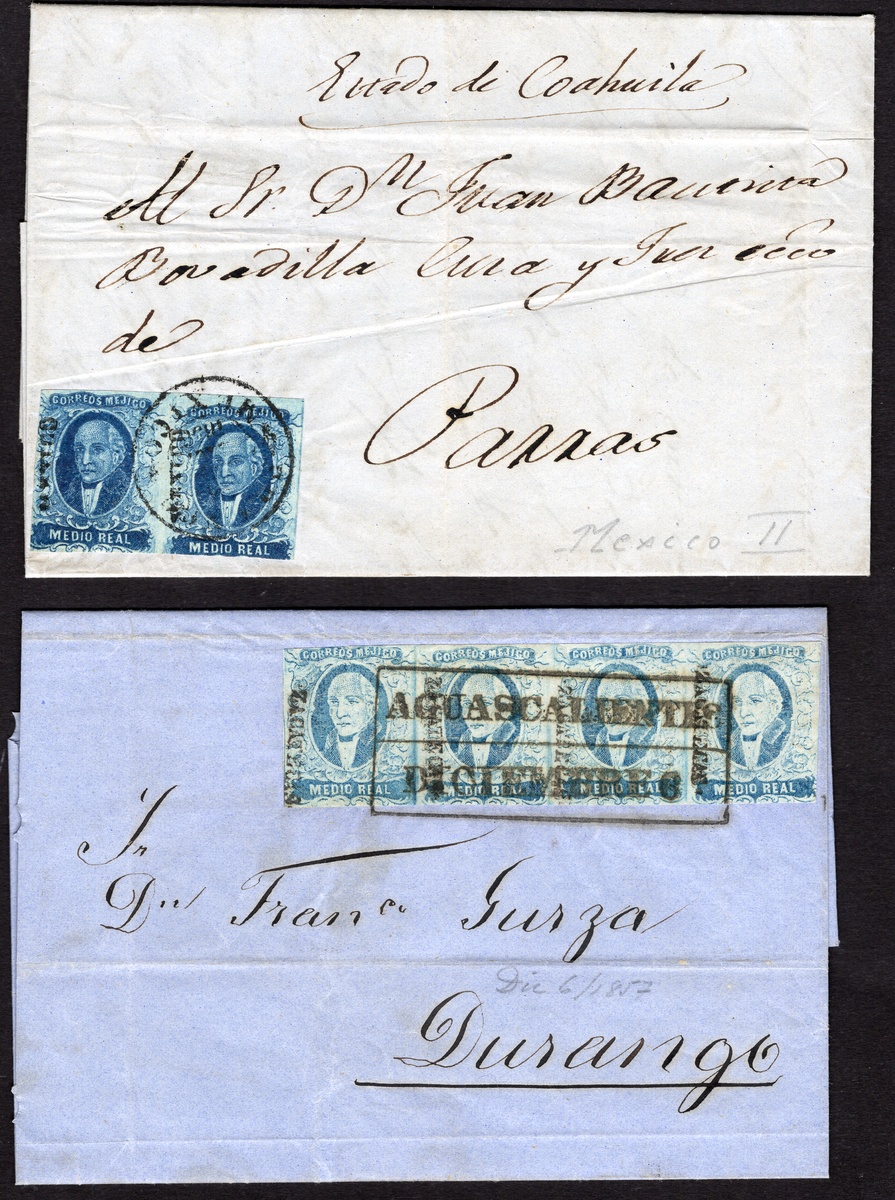 Estado de Coahuila
Al Sr. Dn Juan Bautista
Bovadilla Cura y Juez ecco
de
Parras
CORREOS MEJICO CORREOS MEJICO
MEXICO
MEDIO REAL MEDIO REAL
Mexico II
CORREOS MEJICO CORREOS MEJICO CORREOS MEJICO CORREOS MEJICO
AGUASCALIENTES
DICIEMBRE 6
MEDIO REAL MEDIO REAL MEDIO REAL MEDIO REAL
Sr
Dn Franco Gurza
Dic 6/1857
Durango